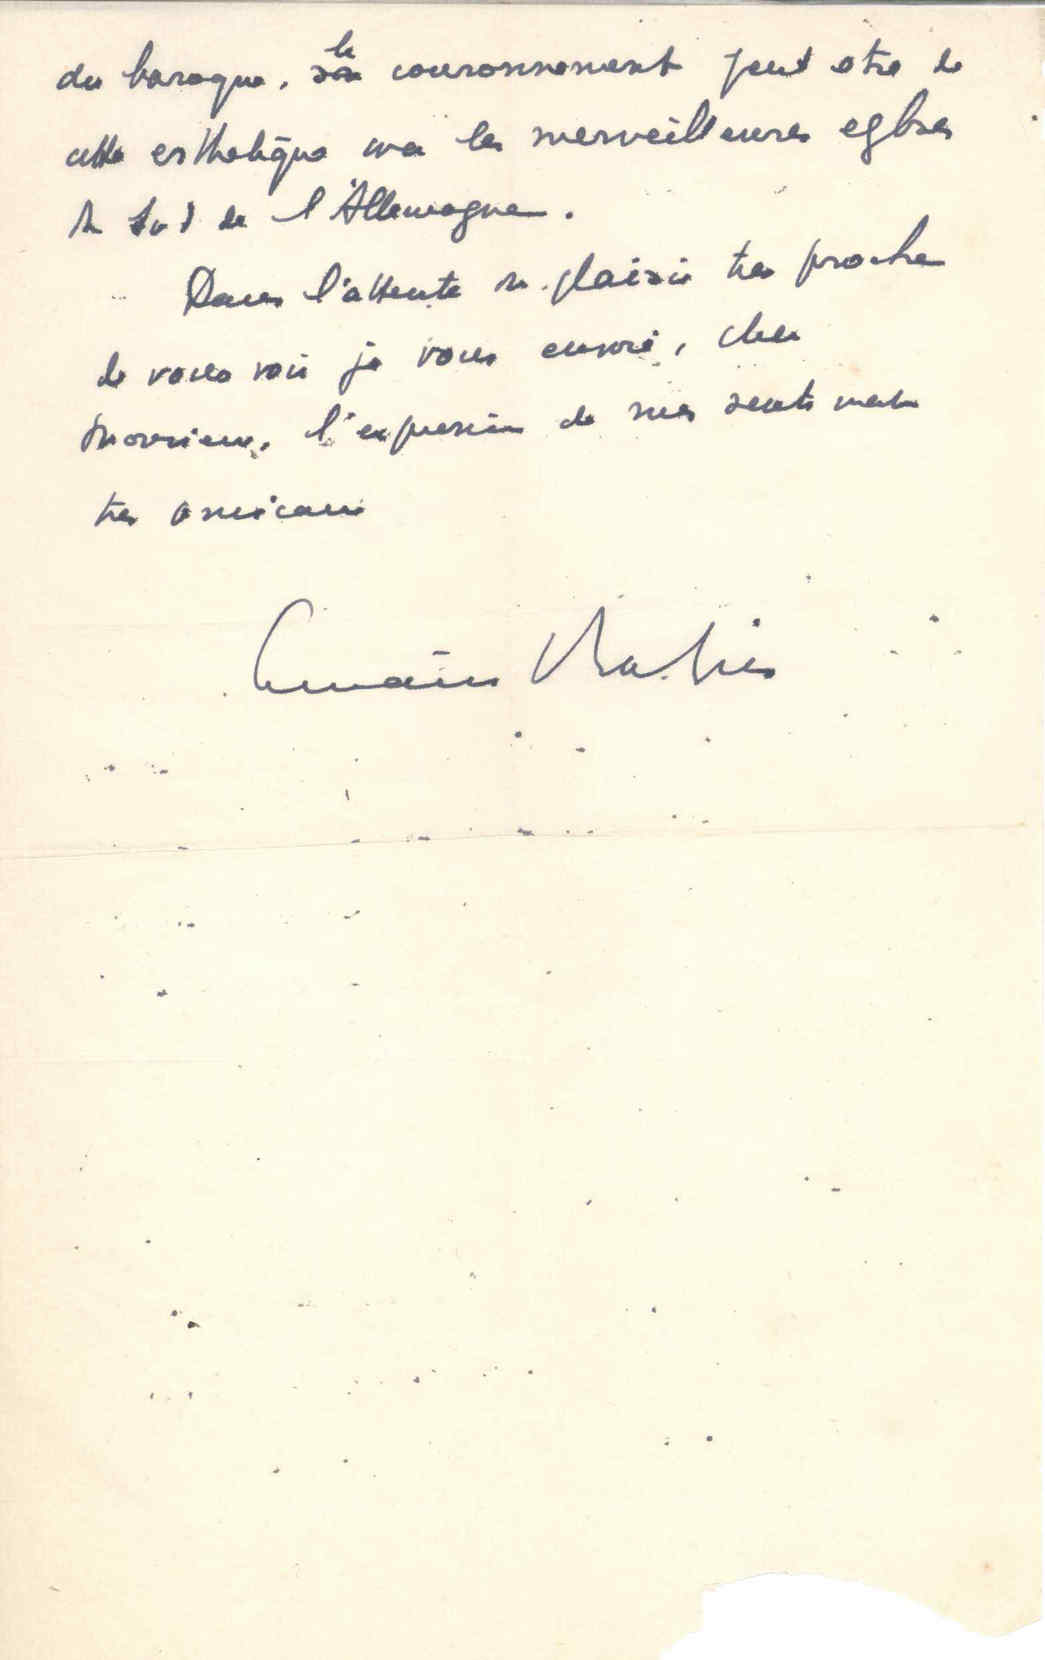 du baroque. le couronnement peut etre de
cette esthetique avec les merveilleuses eglises
du Sud de l'Allemagne.
Dans l'attente du plaisir tres proche
de vous voir je vous envoie, cher
Monsieur, l'expression de mes sentiments
tres amicaux
Germain